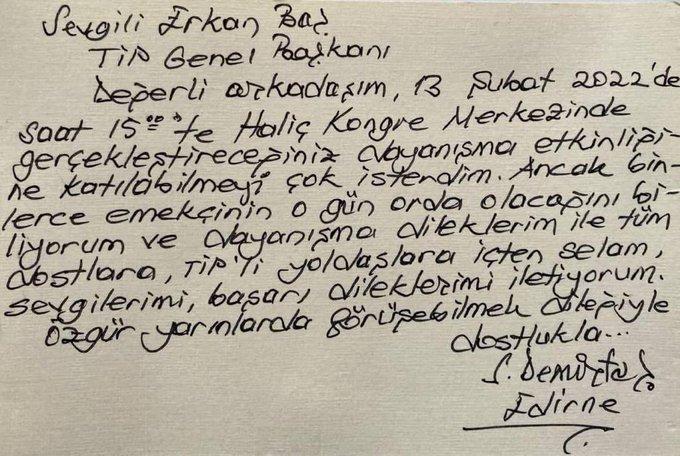 Sevgili Erkan Baş
TİP Genel Başkanı
Değerli arkadaşım, 13 Şubat 2022'de
saat 15⁰⁰'te Haliç Kongre Merkezinde
gerçekleştireceğiniz dayanışma etkinliği-
ne katılabilmeyi çok isterdim. Ancak bin-
lerce emekçinin o gün orda olacağını bi-
liyorum ve dayanışma dileklerim ile tüm
dostlara, TİP'li yoldaşlara içten selam,
sevgilerimi, başarı dileklerimi iletiyorum.
Özgür yarınlarda görüşebilmek dileğiyle
dostlukla...
S. Demirtaş
Edirne